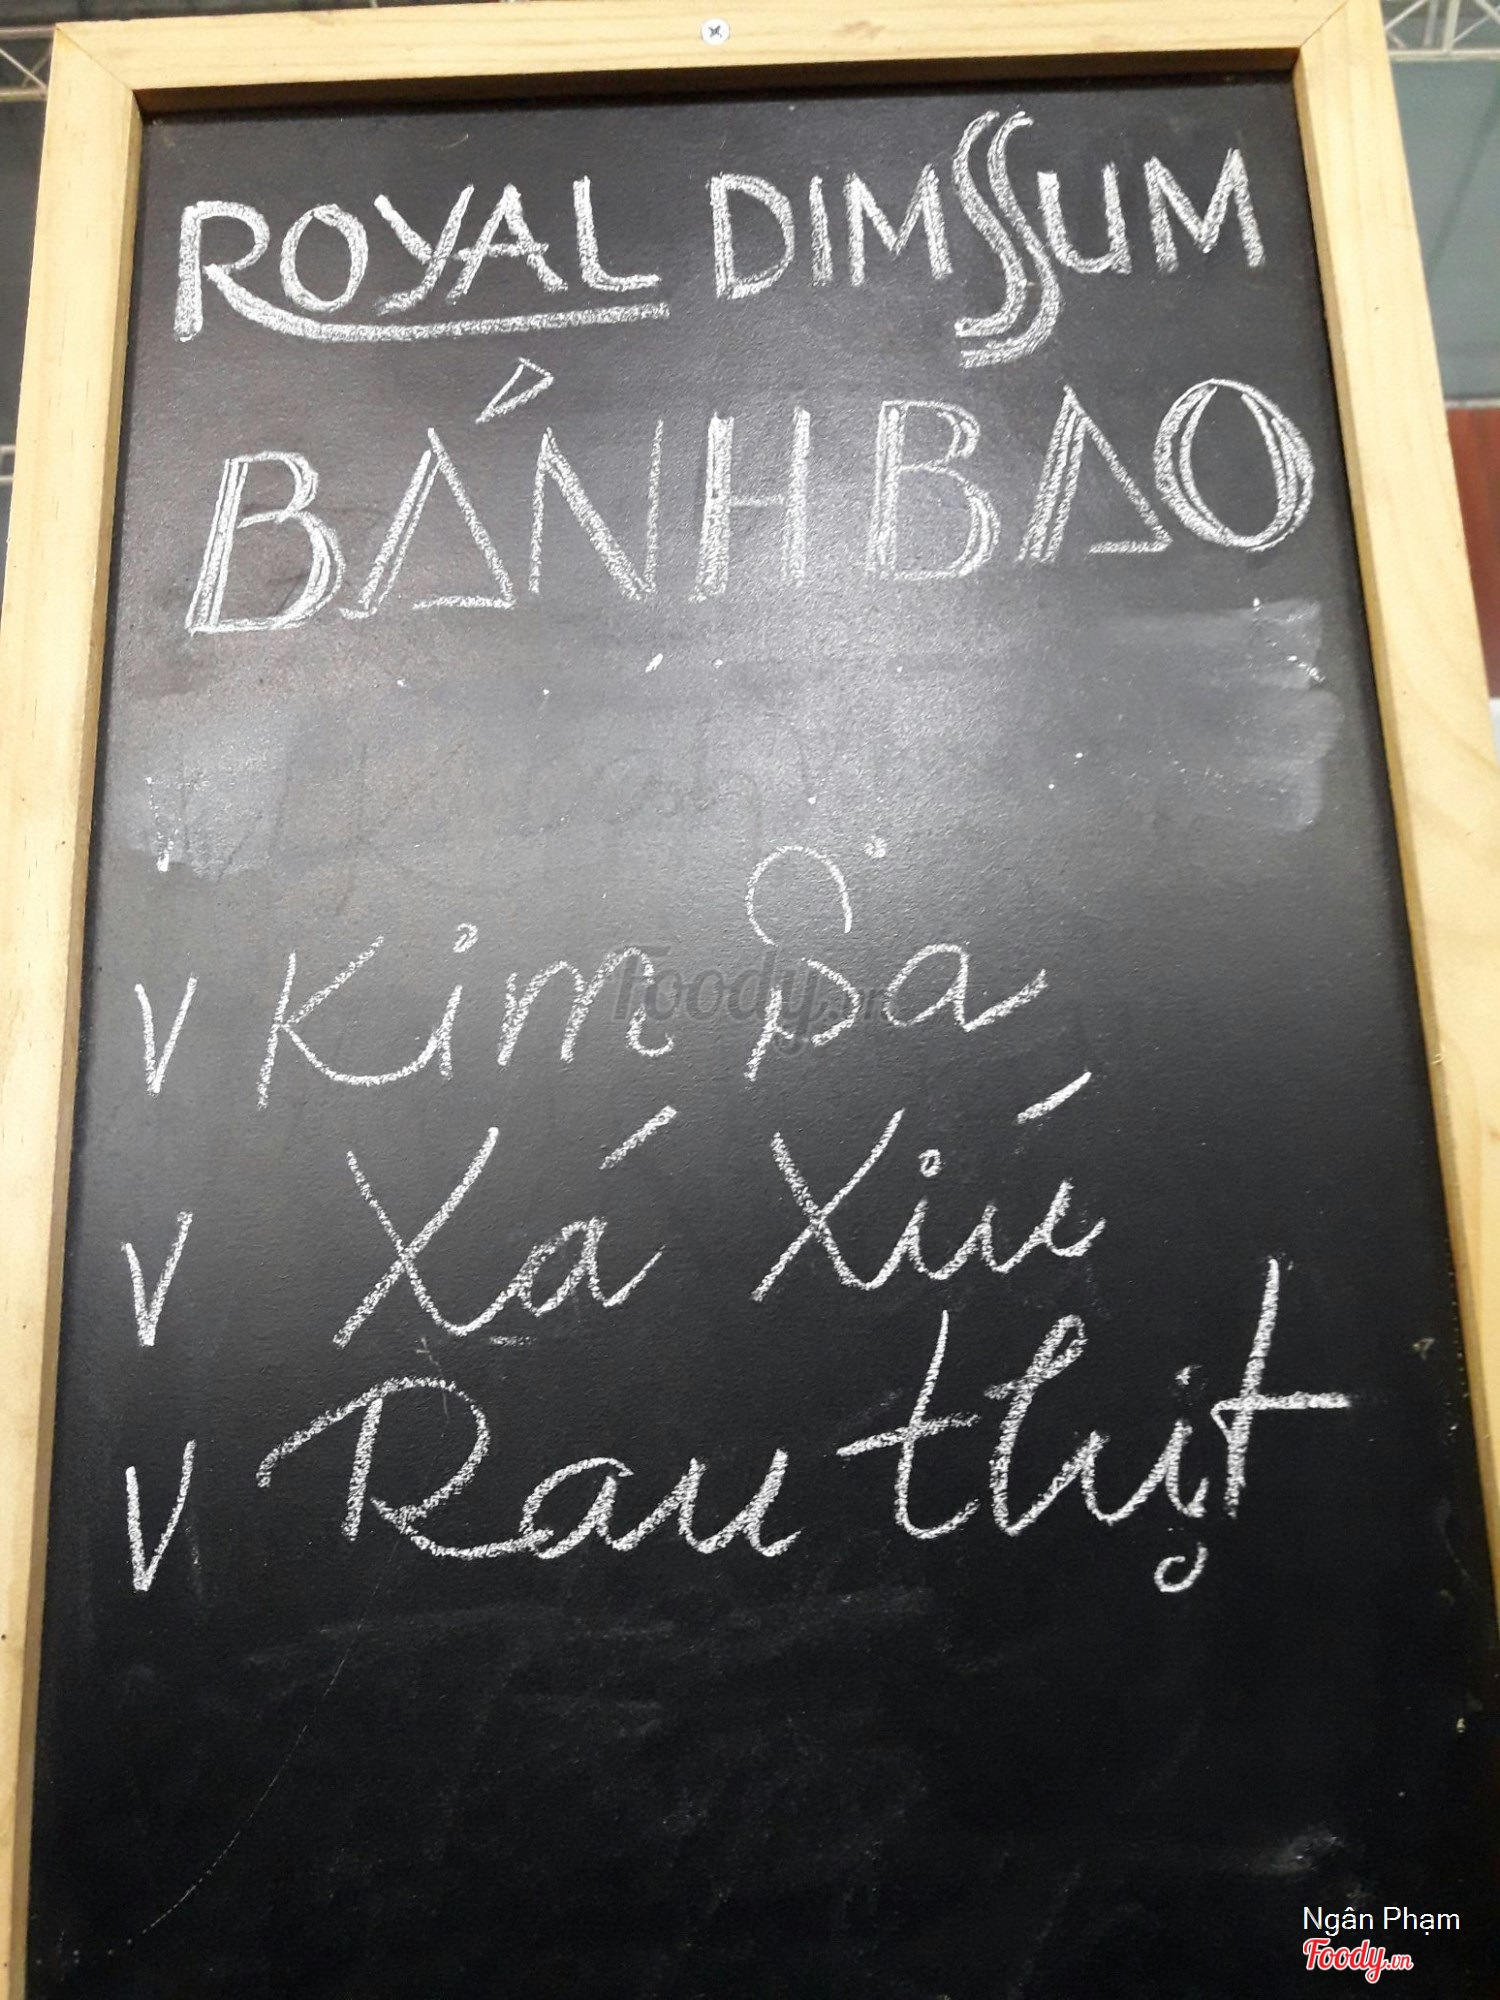 ROYAL DIMSSUM
BÁNH BAO
V Kim Sa
V Xá Xiú
V Rau thịt
Foody.vn
Ngân Phạm
Foody.vn